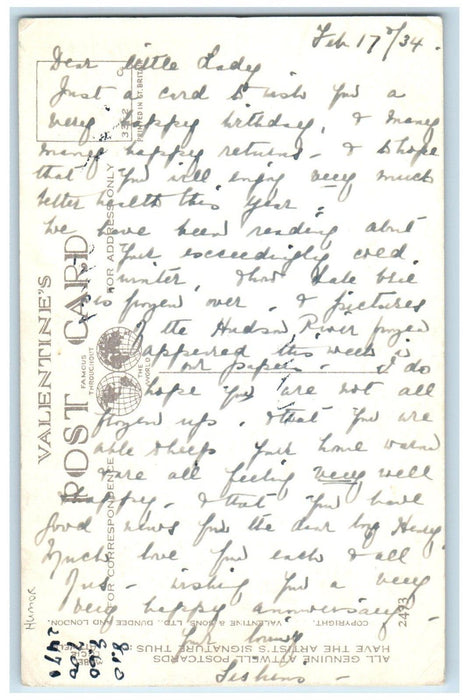 Feb 17th/34.
Dear little Lady
Just a card to wish you a
very happy birthday, & many
many happy returns - & to hope
that you will enjoy very much
better health this year.
We have been reading about
your exceedingly cold
winter, & that Lake Erie
is frozen over, & pictures
of the Hudson River frozen
appeared this week in
our papers. I do
hope you are not all
frozen up, & that you are
able to keep your home warm
& are all feeling very well
& happy, & that you have
good news from the dear boy Henry
Much love to you each & all
from us - wishing you a very
very happy anniversary
Your loving
VALENTINE'S
POST CARD
FAMOUS THROUGHOUT
THE WORLD
FOR ADDRESS ONLY
FOR CORRESPONDENCE
PRINTED IN GT. BRITAIN
ALL GENUINE ATTWELL POSTCARDS
HAVE THE ARTIST'S SIGNATURE, THUS:
COPYRIGHT.
VALENTINE & SONS, LTD. DUNDEE AND LONDON.
2493
Humor